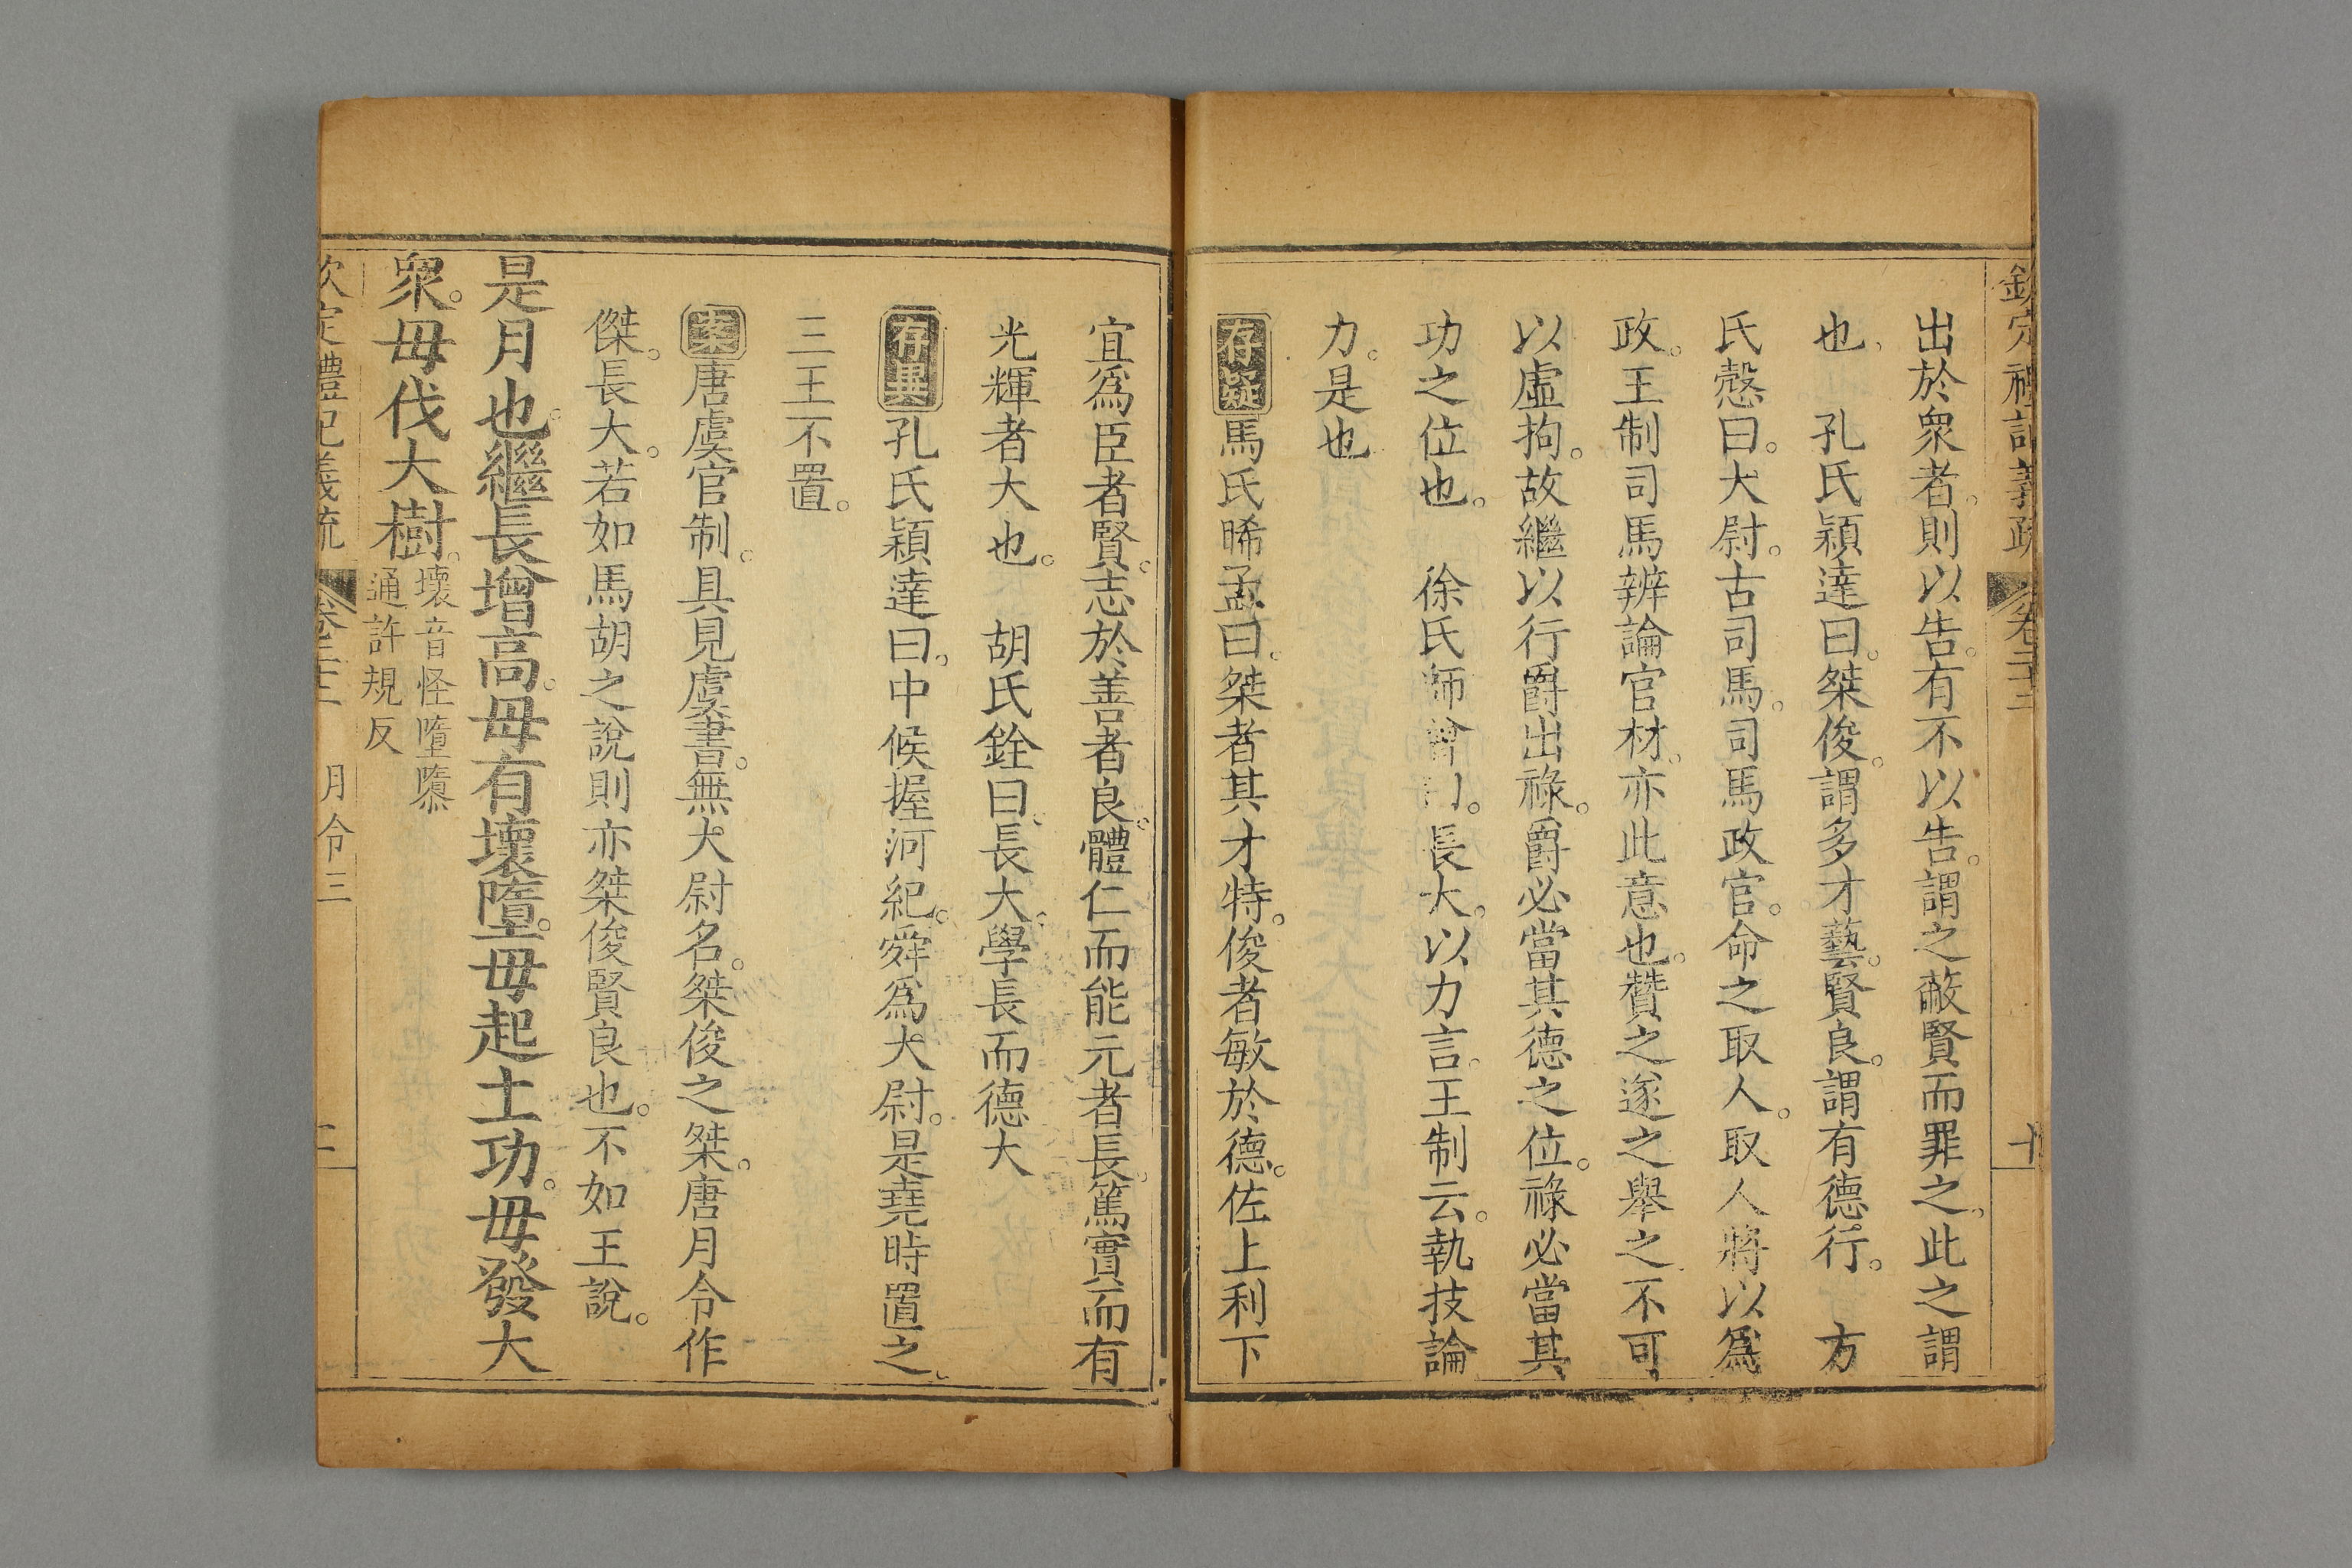 欽定禮記義疏 卷二十二 十
出於衆者。則以告。有不以告。謂之蔽賢而罪之。此之謂
也、 孔氏穎達曰。桀俊。謂多才藝。賢良。謂有德行。 方
氏慤曰。大尉。古司馬。司馬政官。命之取人。取人將以爲
政。王制司馬辨論官材。亦此意也。贊之遂之舉之不可
以虛拘。故繼以行爵出祿。爵必當其德之位。祿必當其
功之位也。 徐氏師曾曰。長大。以力言。王制云。執技論
力。是也
存疑馬氏晞孟曰。桀者其才特。俊者敏於德。佐上利下
宜爲臣者賢。志於善者良。體仁而能元者長。篤實而有
光輝者大也。 胡氏銓曰。長大。學長而德大
存異孔氏穎達曰。中候握河紀。舜爲大尉。是堯時置之。
三王不置。
案唐虞官制。具見虞書。無大尉名。桀俊之桀。唐月令作
傑。長大。若如馬胡之說則亦桀俊賢良也。不如王說。
是月也。繼長增高。毋有壞墮。毋起土功。毋發大
衆。毋伐大樹。壞音怪墮隳
通許規反
欽定禮記義疏 卷二十二 月令三